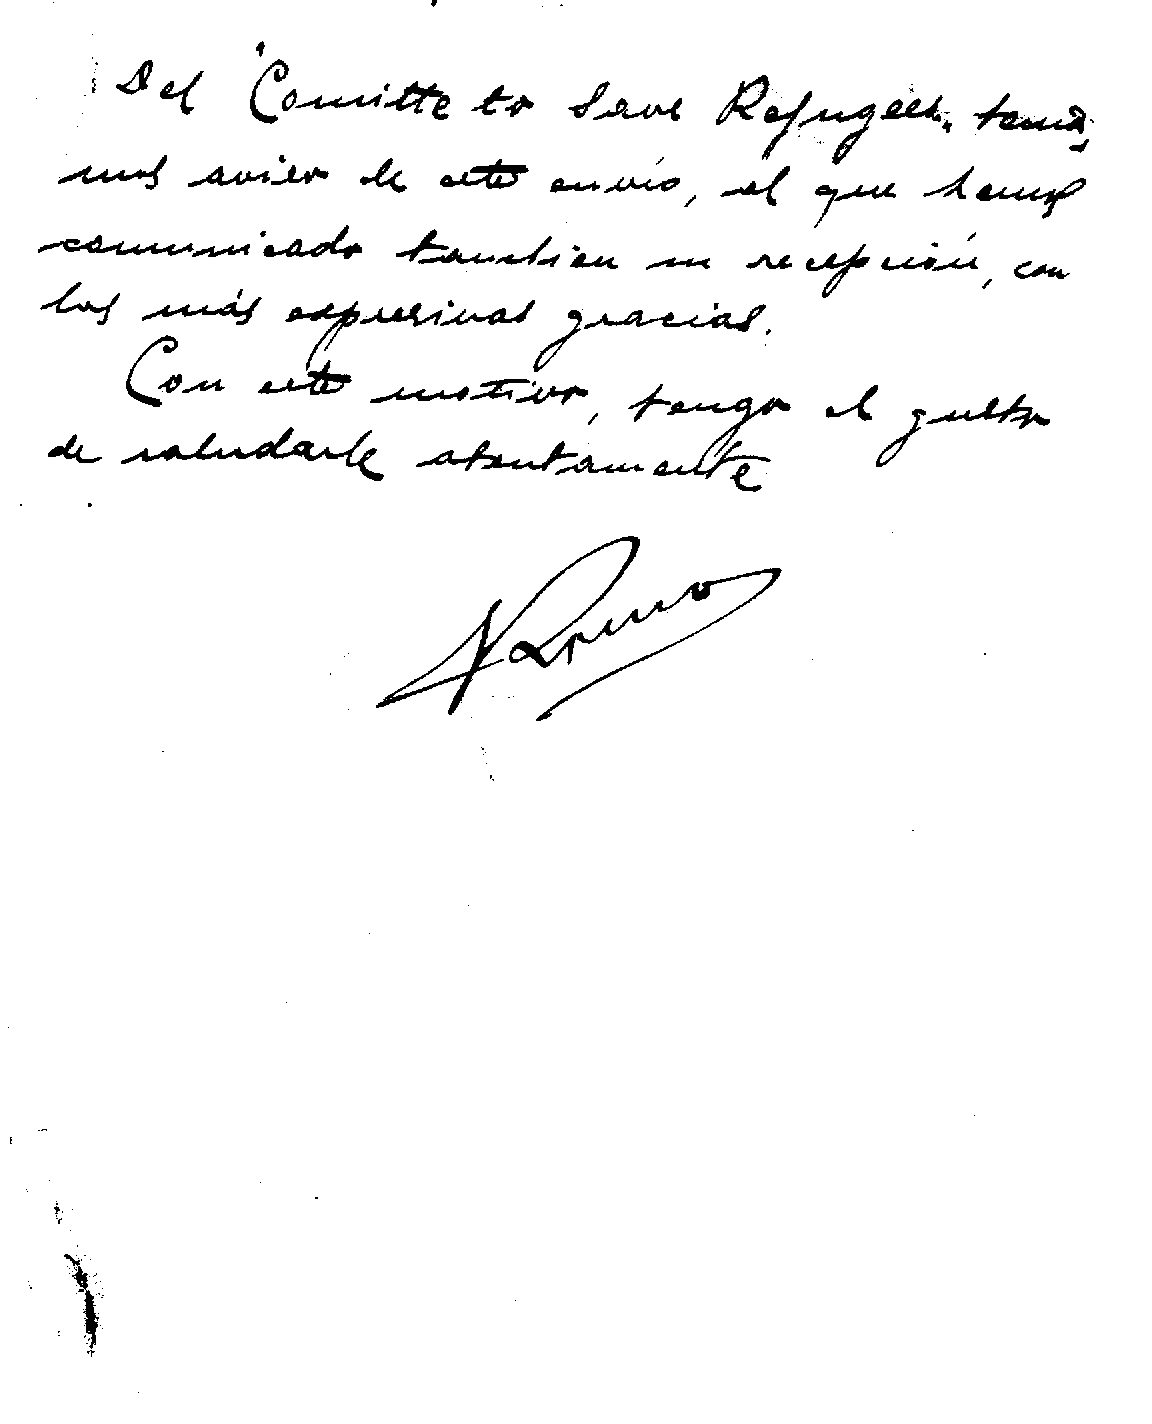 Del "Comitte to Save Refugees" tenía
mos aviso de este envío, al que hemos
comunicado tambien su recepción, con
las más expresivas gracias.
Con este motivo, tengo el gusto
de saludarle atentamente